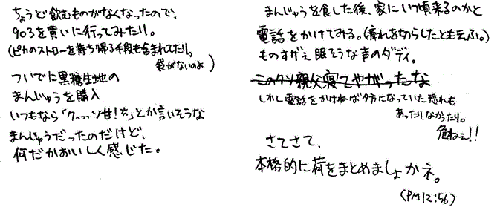 ちょうど飲むものがなくなったので、
903を買いに行ってみた!!。
(ピカのストローを舞う帰る手段も含まれてたり。
袋がないのよ)
ついでに黒糖生地の
まんじゅうを購入
いつもなら「ク…ソ甘!ぢ」とか言いそうな
まんじゅうだったのだけど、
何だかおいしく感じた。
まんじゅうを食した後、家にいつ頃来るのかと
電話をかけてみる。
ものすげぇ眠そうな声のダディ。
このクソ親父寝てやがったな
しかし電話をかけねば夕方になっていた恐れも
あったりなかったり。
危ねぇ!!
さてさて、
本格的に荷をまとめましょかネ。
(PM12:56)